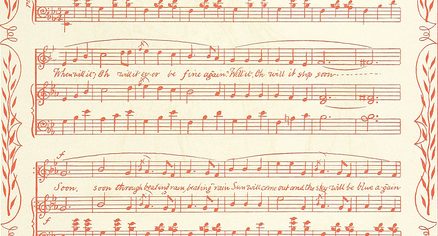 When will it, Oh will it ever be fine again? Will it, Oh will it stop soon
Soon, soon through beating rain, beating rain Sun will come out and the sky will be blue again